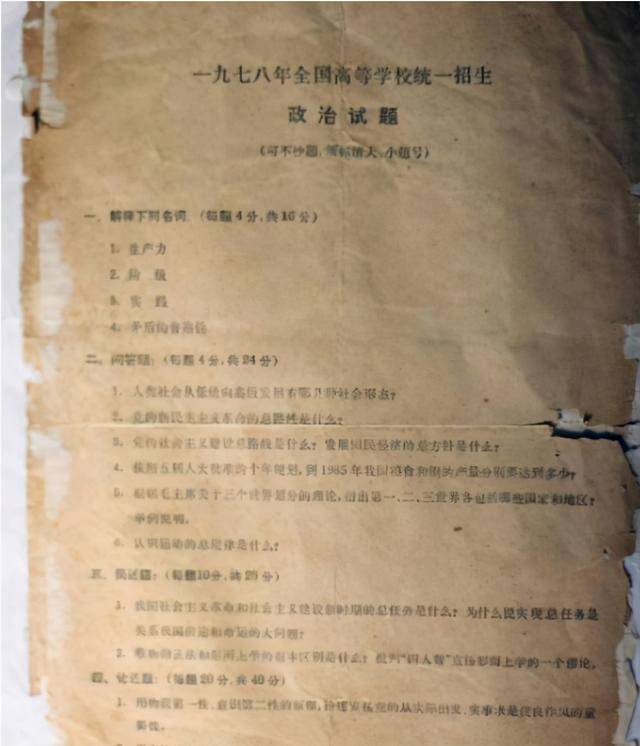 一九七八年全国高等学校统一招生
政治试题
(可不抄题,须标清大、小题号)
一、解释下列名词:(每题4分,共16分)
1. 生产力
2. 阶 级
3. 实 践
4. 矛盾的普遍性
二、问答题:(每题4分,共24分)
1. 人类社会从低级向高级发展有哪几种社会形态?
2. 党的新民主主义革命的总路线是什么?
3. 党的社会主义建设总路线是什么?发展国民经济的总方针是什么?
4. 按照五届人大批准的十年规划,到1985年我国粮食和钢的产量分别要达到多少?
5. 根据毛主席关于三个世界划分的理论,指出第一、二、三世界各包括哪些国家和地区?
举例说明。
6. 认识运动的总规律是什么?
三、简述题:(每题10分,共20分)
1. 我国社会主义革命和社会主义建设新时期的总任务是什么?为什么说实现总任务是
关系我国前途和命运的大问题?
2. 唯物辩证法和形而上学的根本区别是什么?批判“四人帮”宣扬形而上学的一个谬论。
四、论述题:(每题20分,共40分)
1. 用物质第一性、意识第二性的原理,论述发扬党的从实际出发、实事求是优良作风的重
要性。